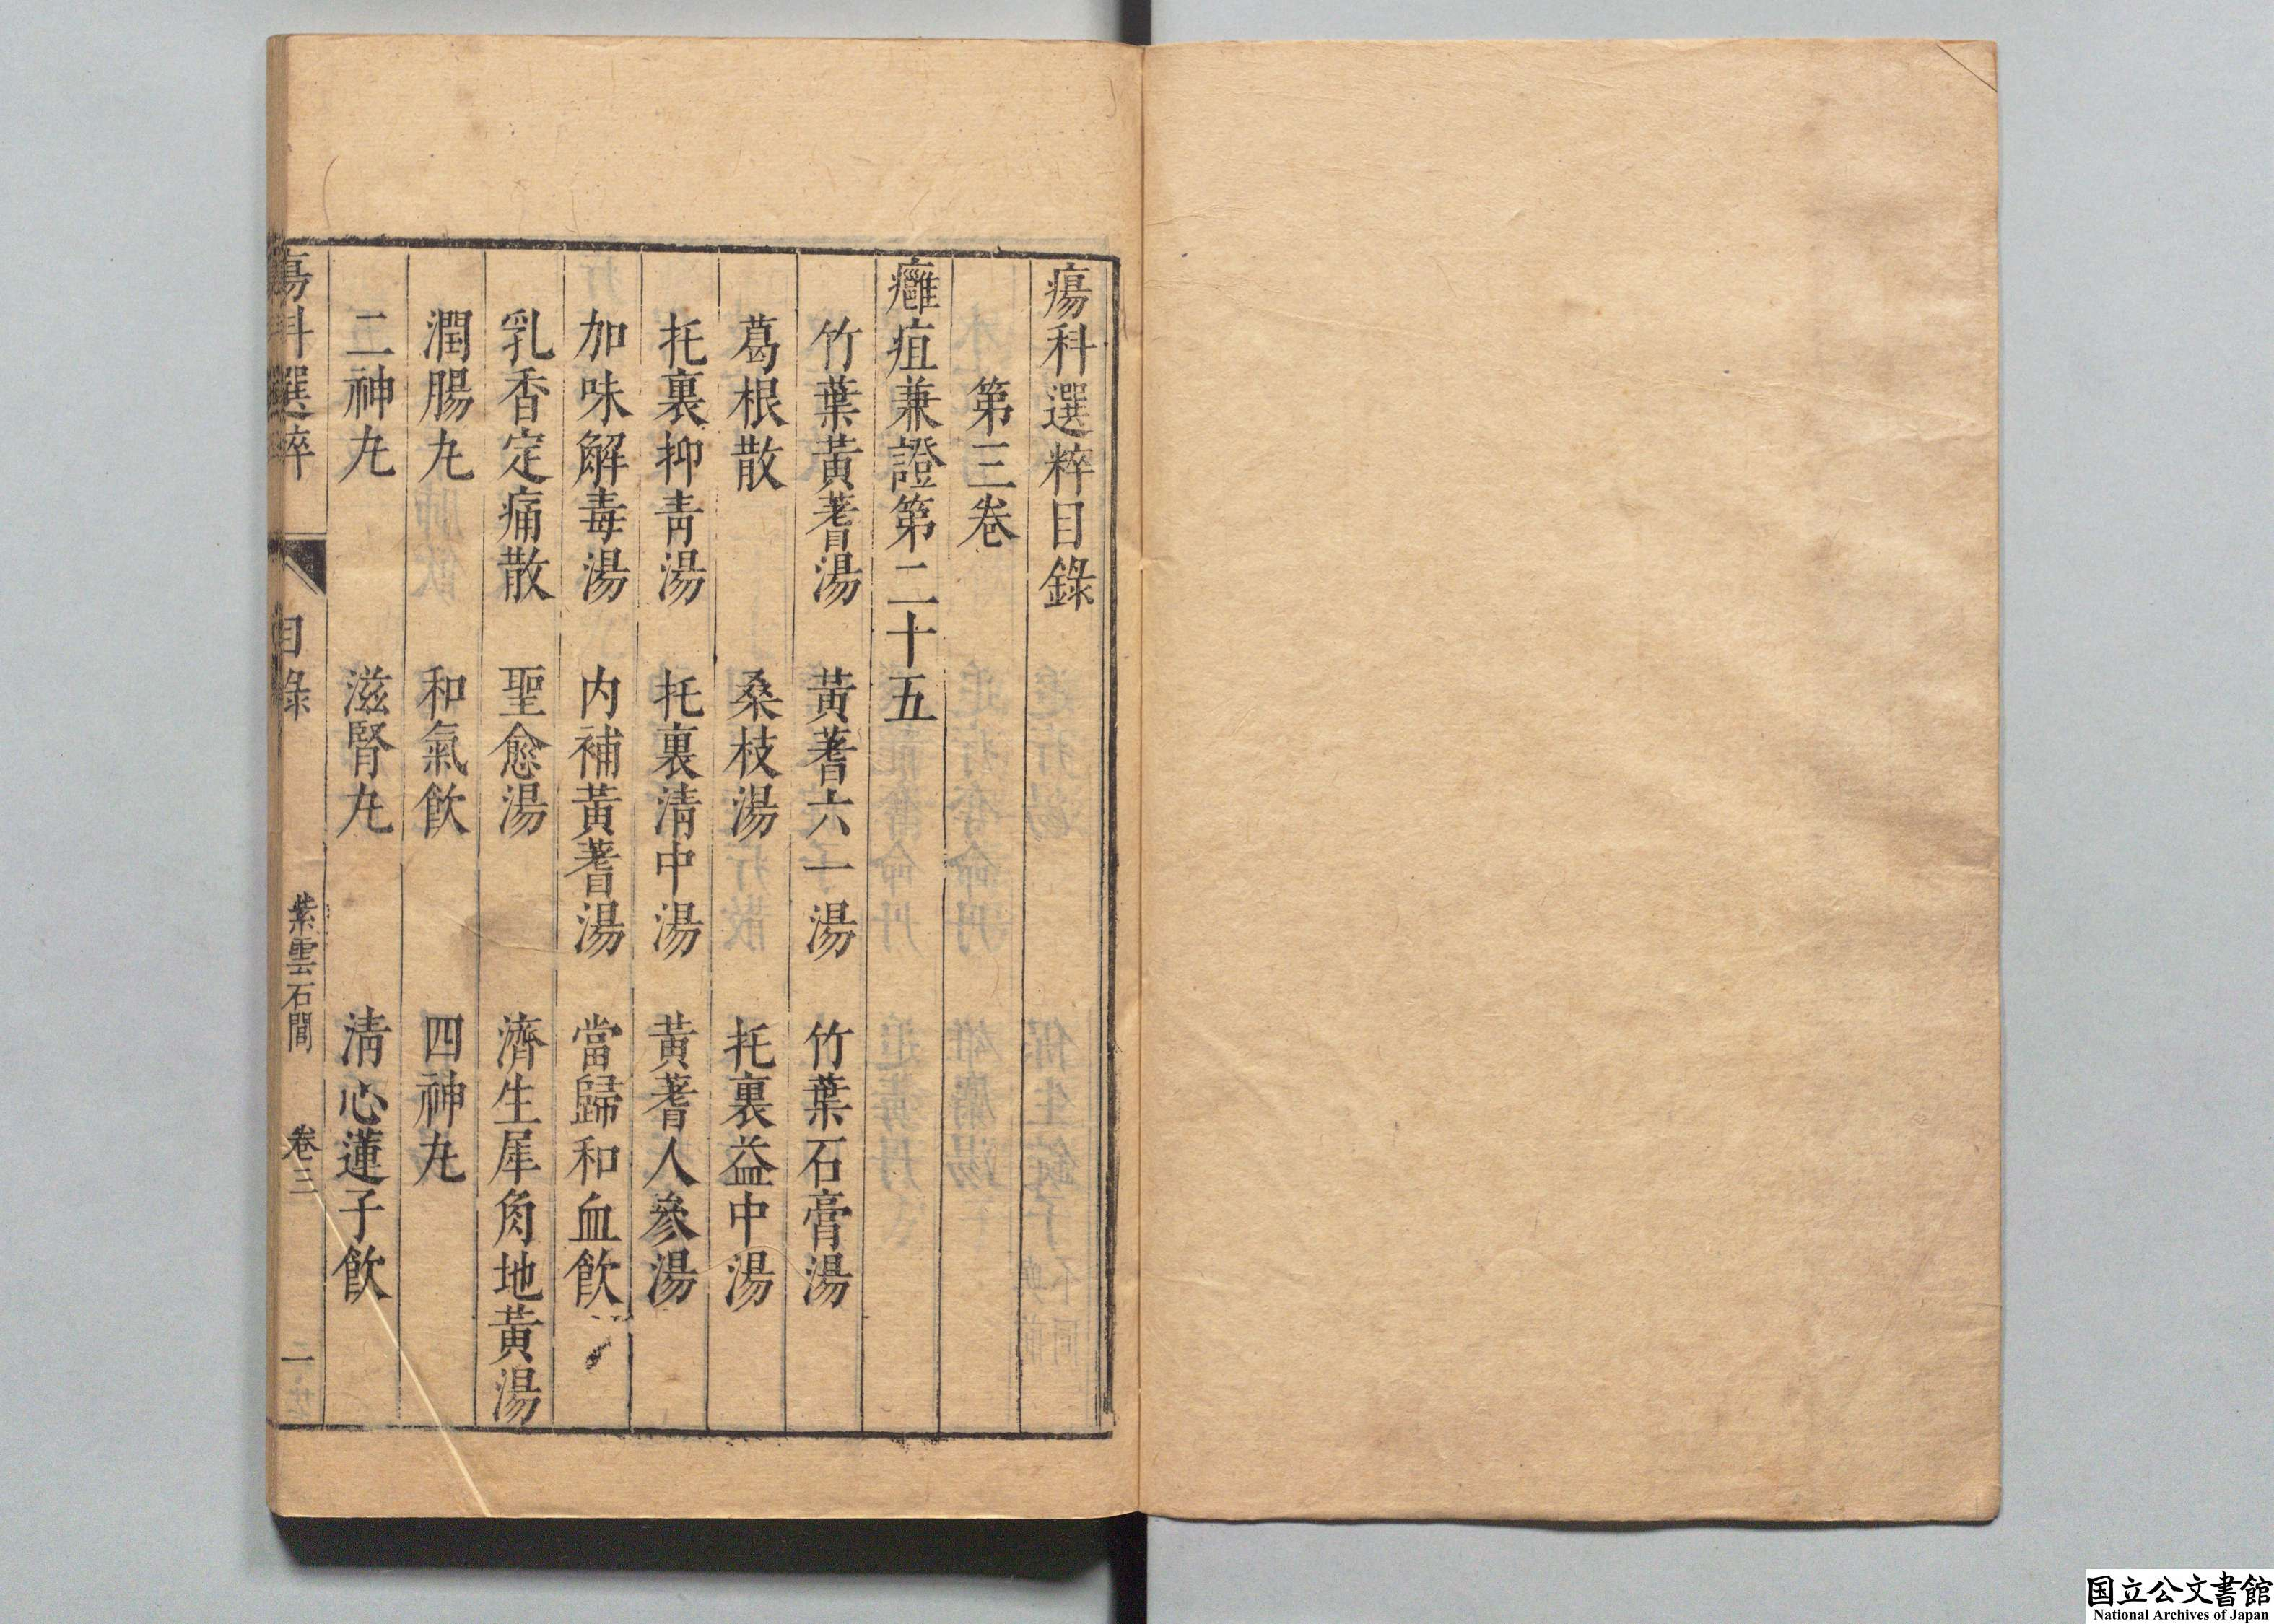 瘍科選粹目錄
第三卷
癰疽兼證第二十五
竹葉黃蓍湯　黃蓍六一湯　竹葉石膏湯
葛根散　桑枝湯　托裏益中湯
托裏抑青湯　托裏清中湯　黃蓍人參湯
加味解毒湯　內補黃蓍湯　當歸和血飲
乳香定痛散　聖愈湯　濟生犀角地黃湯
潤腸丸　和氣飲　四神丸
二神丸　滋腎丸　清心蓮子飲
瘍科選粹　目錄　紫雲石間　卷三　一
国立公文書館
National Archives of Japan